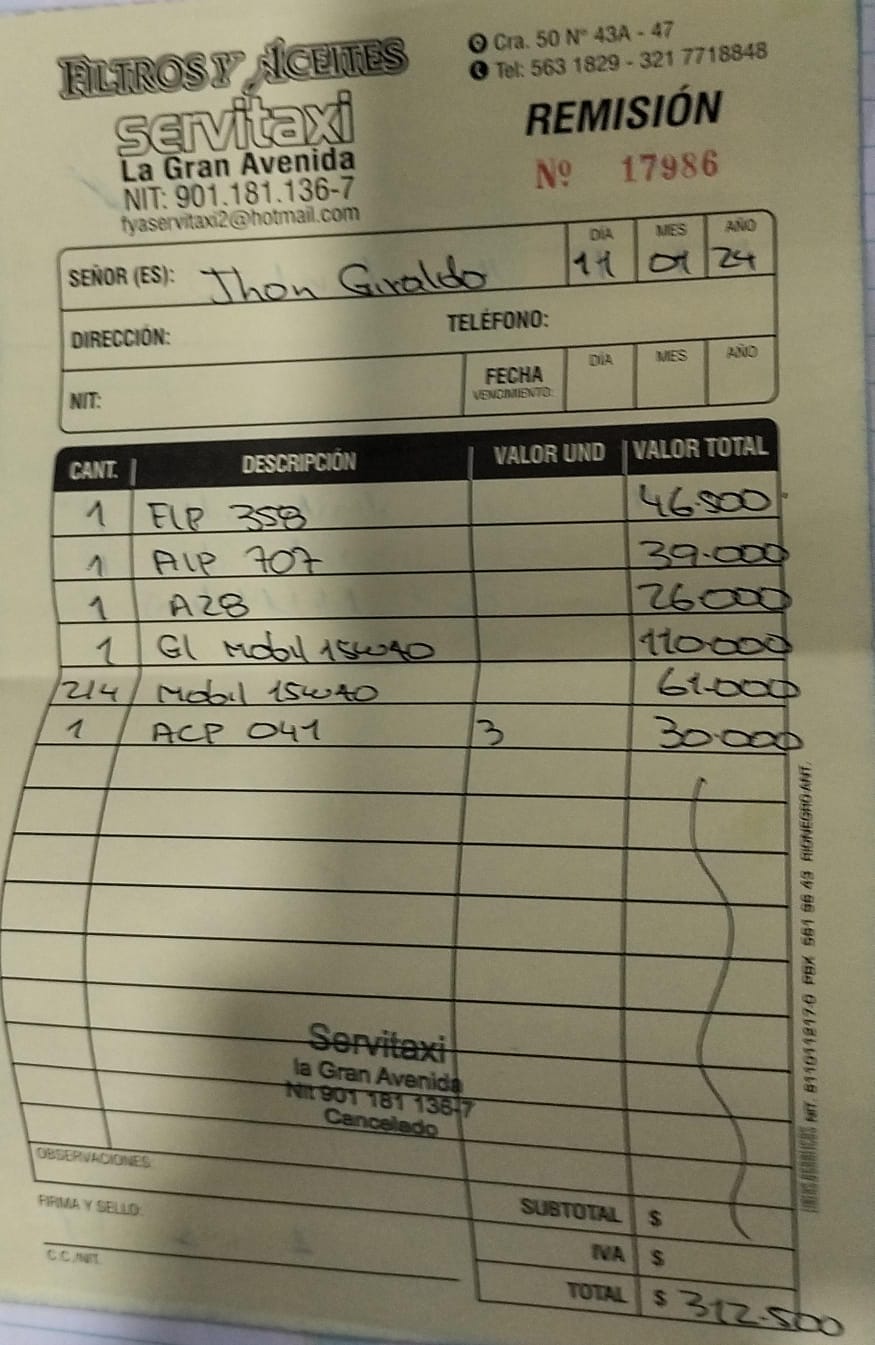 FILTROS Y ACEITES
servitaxi
La Gran Avenida
NIT: 901.181.136-7
fyaservitaxi2@hotmail.com
Cra. 50 N° 43A - 47
Tel: 563 1829 - 321 7718848
REMISIÓN
Nº 17986
SEÑOR (ES): Jhon Giraldo
DÍA MES AÑO
11 01 24
DIRECCIÓN: TELÉFONO:
NIT: FECHA VENCIMIENTO: DÍA MES AÑO
CANT. DESCRIPCIÓN VALOR UND VALOR TOTAL
1 ELP 358 46.500
1 AIP 707 39.000
1 A28 26000
1 Gl Mobil 15W40 110.000
2/4 Mobil 15W40 61.000
1 ACP 041 3 30.000
Servitaxi
la Gran Avenida
Nit 901 181 136-7
Cancelado
OBSERVACIONES:
FIRMA Y SELLO:
C.C./NIT.
SUBTOTAL $
IVA $
TOTAL $ 312.500
NIT. 811011917-0 PBX 561 66 43 RIONEGRO ANT.